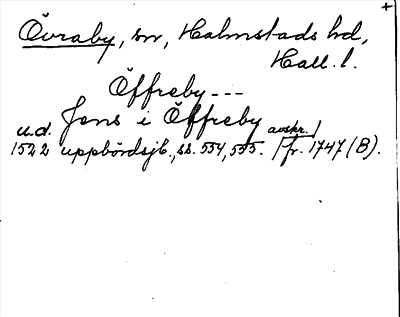 +
Övraby, sn, Halmstads hd,
Hall. l.
Öffreby ---
u.d. Jens i Öffreby avskr.
1522 uppbördsjb., ss. 554, 555. fr. 1747 (B).